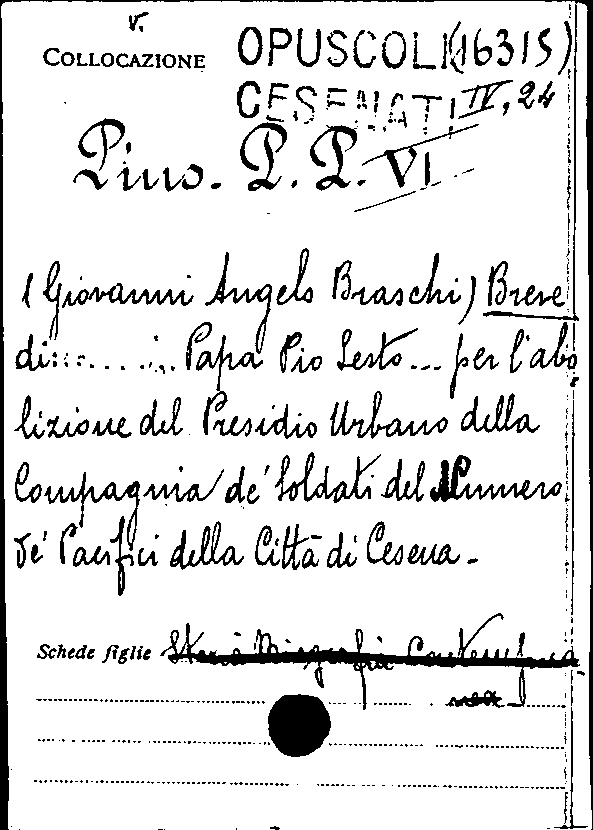 v.
COLLOCAZIONE OPUSCOLI (16315)
CESENATI IV, 24
Pius. P. P. VI
(Giovanni Angelo Braschi) Breve
di:::.....:.. Papa Pio Sesto... per l'abo
lizione del Presidio Urbano della
Compagnia de' Soldati del Numero
de' Pacifici della Città di Cesena -
Schede figlie